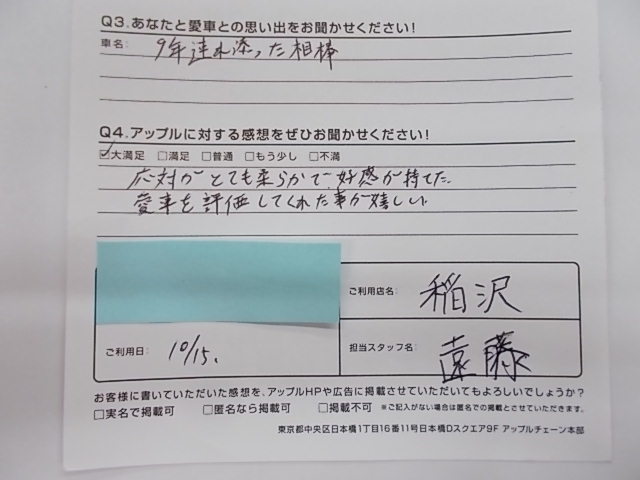 Q3.あなたと愛車との思い出をお聞かせください!
車名: 9年連れ添った相棒
Q4.アップルに対する感想をぜひお聞かせください!
☑大満足 □満足 □普通 □もう少し □不満
応対がとても柔らかで好感が持てた。
愛車を評価してくれた事が嬉しい
ご利用店名: 稲沢
ご利用日: 10/15.
担当スタッフ名: 遠藤
お客様に書いていただいた感想を、アップルHPや広告に掲載させていただいてもよろしいでしょうか?
□実名で掲載可 □匿名なら掲載可 □掲載不可 ※ご記入がない場合は匿名での掲載とさせていただきます。
東京都中央区日本橋1丁目16番11号日本橋Dスクエア9F アップルチェーン本部